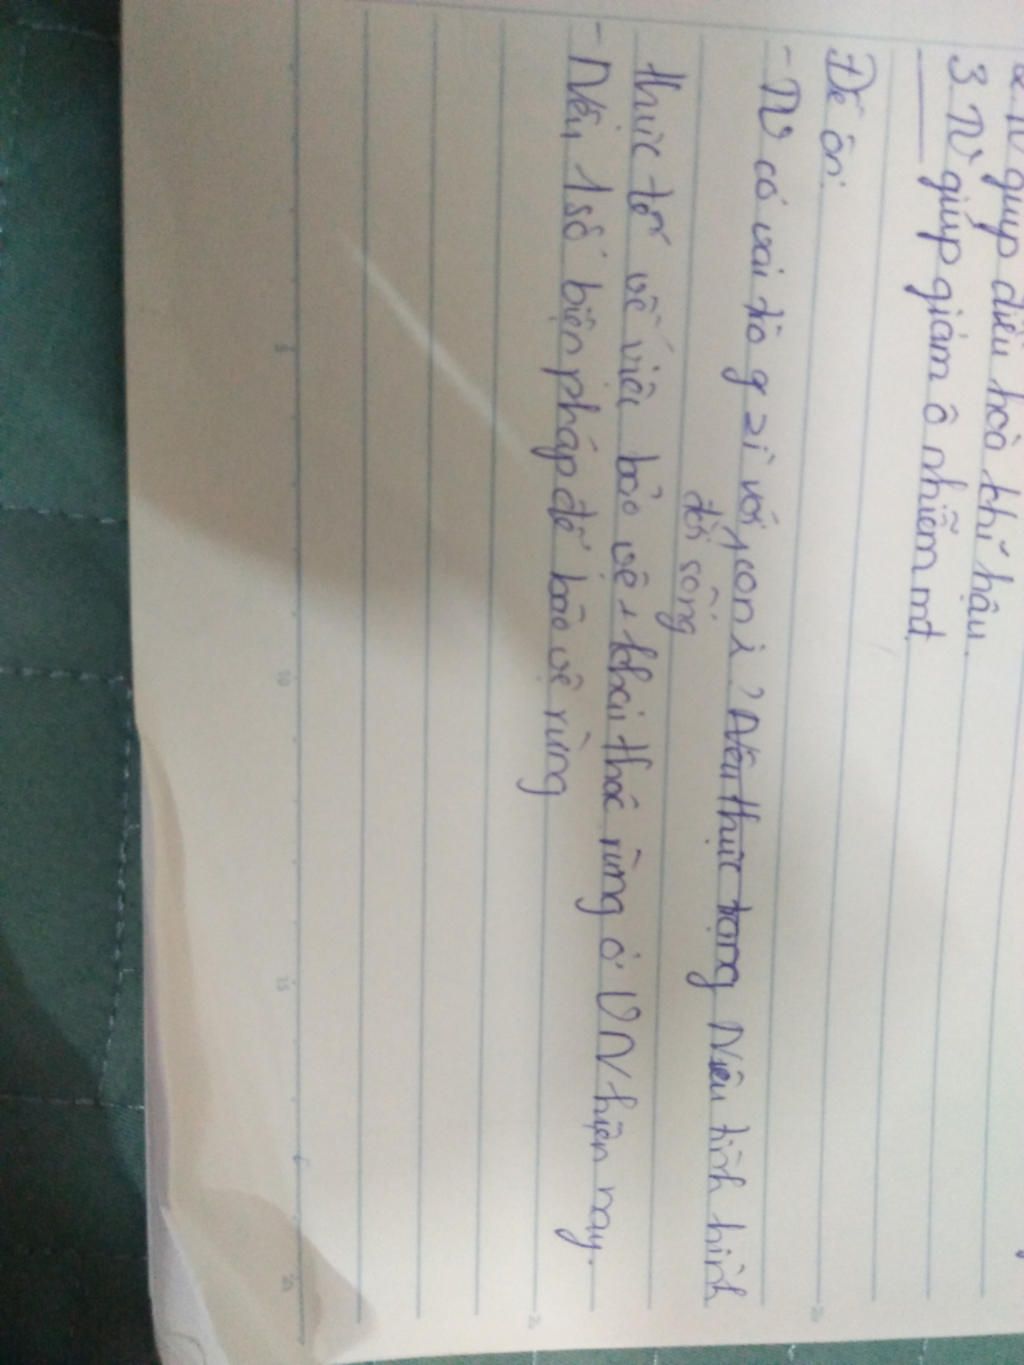 2. TV giúp điều hoà khí hậu.
3. TV giúp giảm ô nhiễm mt.
Đề ôn:
- TV có vai trò g zì với đời sống con ? Nêu thực trạng Nêu tình hình
thực tế về việc bảo vệ + khai thác rừng ở VN hiện nay.
- Nêu 1 số biện pháp để bảo vệ rừng